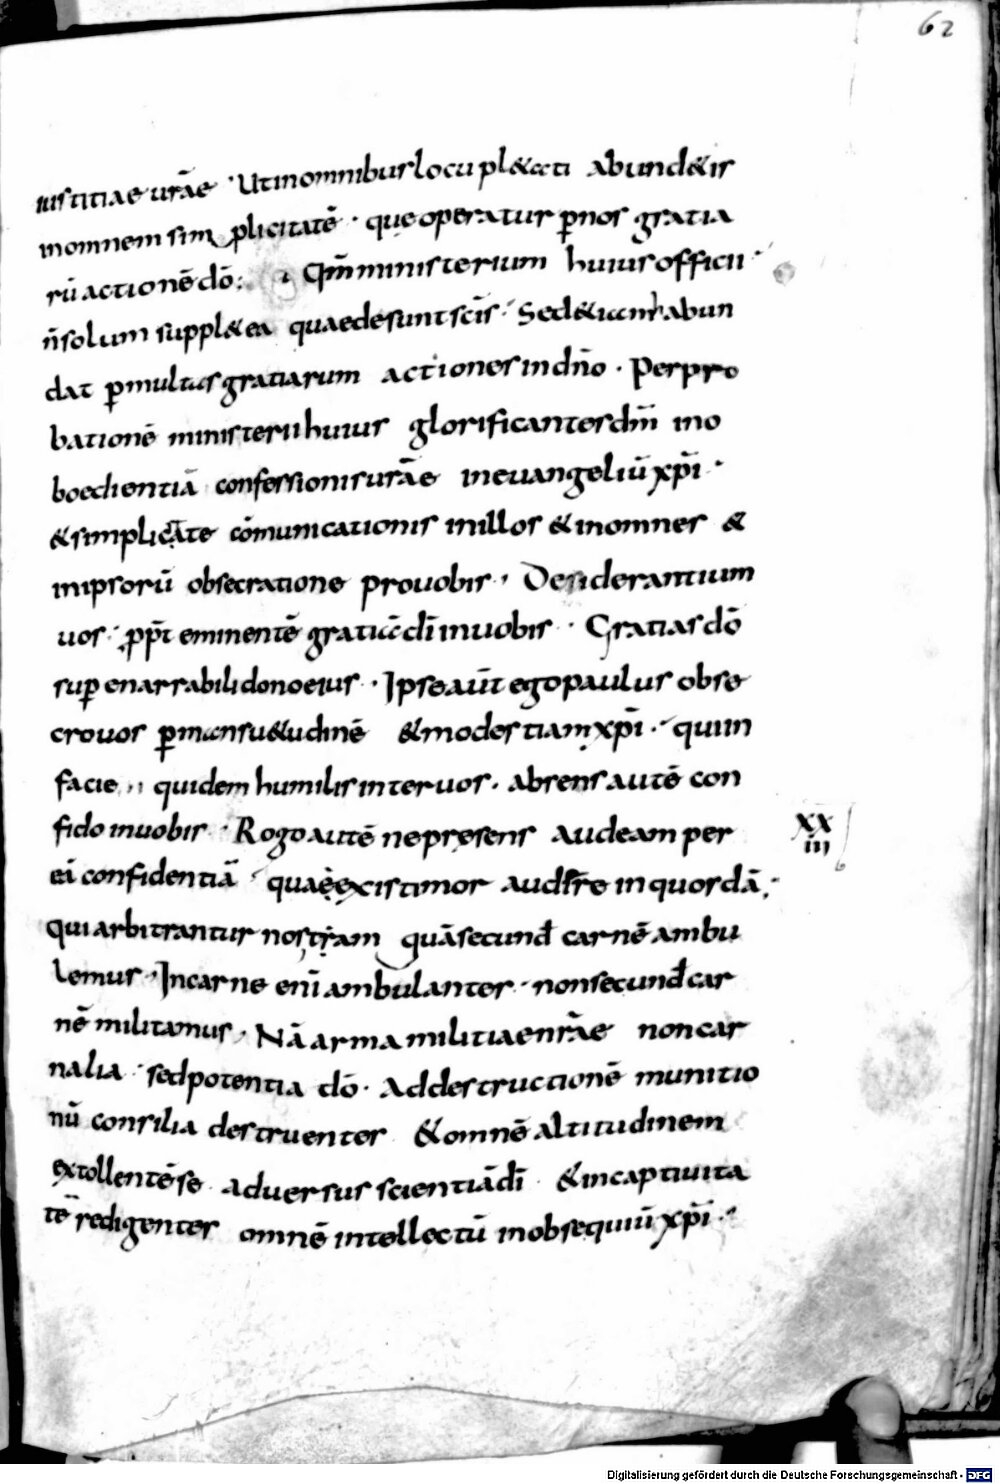 62
iustitiae urāe · Ut in omnibus locupl&ati abund&is
in omnem simplicitatē · que operatur p̄ nos gratia
rū actionē dō: Qm̄ ministerium huius officii ·
ñ solum suppl&ea quae desunt scīs · Sed & iam abun
dat p̄ multas gratiarum actiones in dn̄o · Per pro
bationē ministerii huius glorificantes dm̄ in o
boedientiā confessionis urāe in euangeliū xp̄i ·
& simplicitate cōmunicationis in illos & in omnes &
in ipsorū obsecratione pro uobis · Desiderantium
uos · p̄pt eminentē gratiā dī in uobis · Gratias dō
sup̄ enarrabili dono eius · Ipse aut̄ ego paulus obse
cro uos p̄ mansu&udinē & modestiam xp̄i · qui in
facie quidem humilis inter uos · absens autē con
fido in uobis · Rogo autē ne presens audeam per
XX
III
eā confidentiā · quae existimor audere in quosdā ;
qui arbitrantur nos tram quā secund̄ carnē ambu
lemus · In carne enī ambulantes · non secund̄ car
nē militamus · Nā arma militiae nrāe non car
nalia · sed potentia dō · Ad destructionē munitio
nū consilia destruentes & omnē altitudinem
extollentē se aduersus scientiā dī & in captiuita
tē redigentes omnē intellectū in obsequiū xp̄i ·
Digitalisierung gefördert durch die Deutsche Forschungsgemeinschaft - DFG